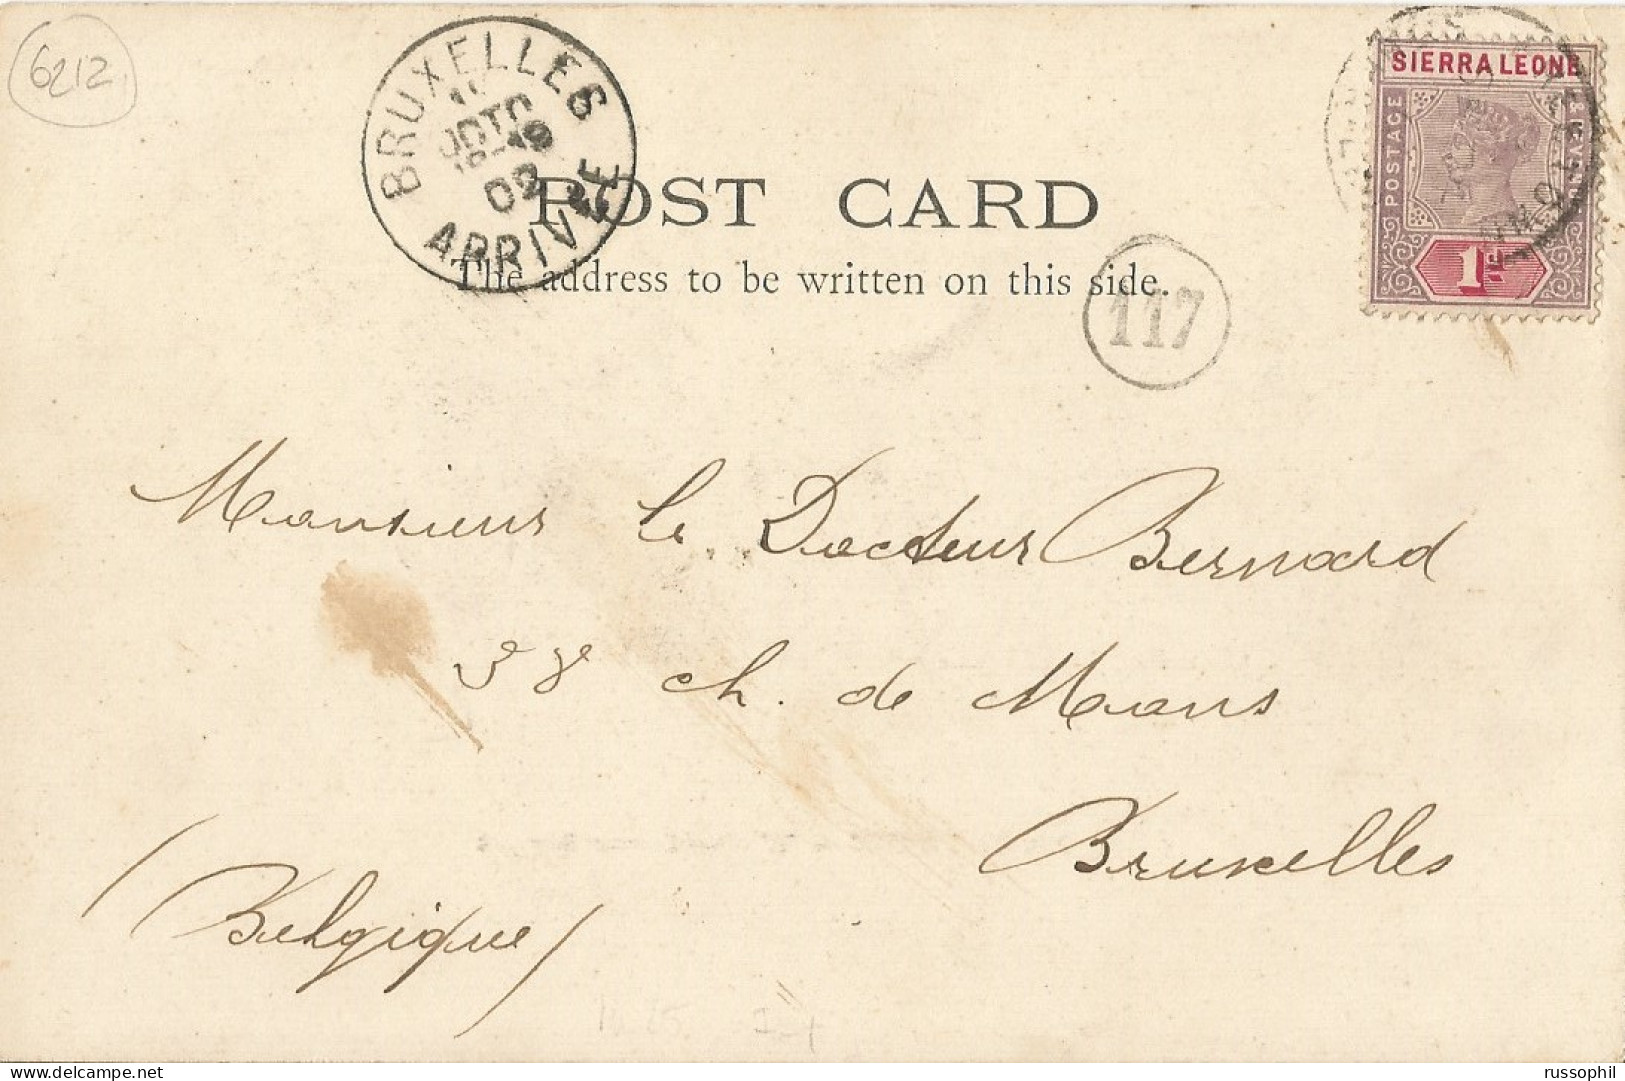 6212
BRUXELLES
OCTO
18-19
02
ARRIVEE
SIERRA LEONE
POSTAGE & REVENUE
1D
POST CARD
The address to be written on this side.
117
Monsieur le Docteur Bernard
38 ch. de Mons
Bruxelles
(Belgique)
russophil
www.delcampe.net